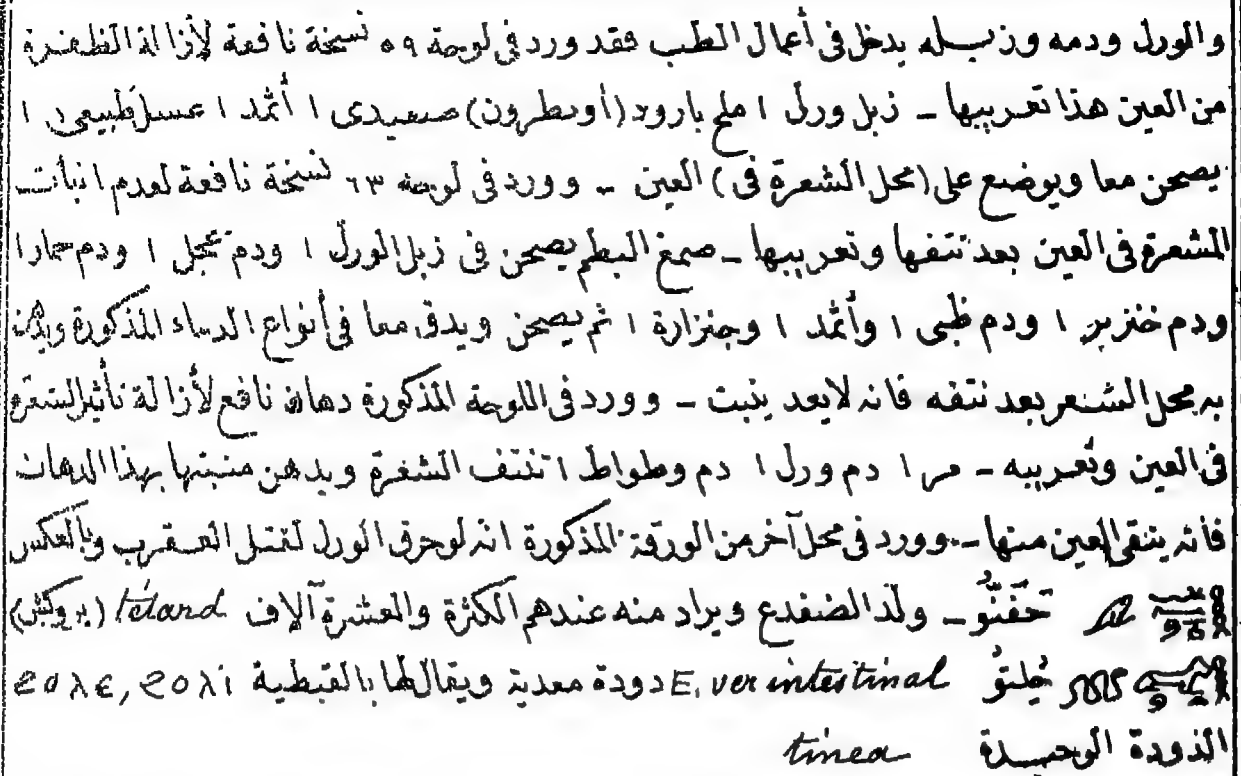 والورل ودمه وزبله يدخل فى أعمال الطب فقد ورد فى لوحة ٥٩ نسخة نافعة لأزالة الظفرة
من العين هذا تعريبها - زبل ورل ١ ملح بارود (أو نطرون) صعيدى ١ أثمد ١ عسل طبيعى ١
يصحن معا ويوضع على (محل الشعرة فى) العين - وورد فى لوحة ٦٣ نسخة نافعة لعدم انبات
الشعرة فى العين بعد نتفها وتعريبها - صمغ البطم يصحن فى زبل الورل ١ ودم عجل ١ ودم حمار ١
ودم خنزير ١ ودم ظبى ١ وأثمد ١ وجنزارة ١ ثم يصحن ويدق معا فى أنواع الدماء المذكورة ويدهن
به محل الشعر بعد نتفه فانه لا يعد ينبت - وورد فى اللوحة المذكورة دهان نافع لأزالة تأثير الشعرة
فى العين وتعريبه - مر ١ دم ورل ١ دم وطواط ١ تنتف الشعرة ويدهن منبتها بهذا الدهان
فانه ينقى العين منها - وورد فى محل آخر من الورقة المذكورة انه لو حرق الورل لقتل العقرب وبالعكس
حَفَنُّو - ولد الضفدع ويراد منه عندهم الكثرة والعشرة آلاف tétard (بروكش)
E. ver intestinal دودة معدية ويقال لها بالقبطية ϩⲟⲗⲓ ,ϩⲟⲗⲉ
الدودة الوحيدة tinea